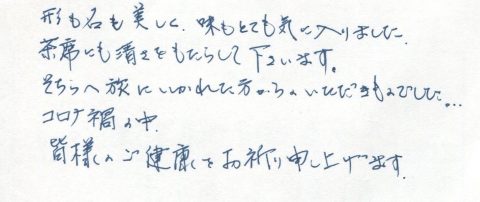 形も名も美しく、味もとても気に入りました.
茶席にも清さをもたらして下さいます。
そちらへ旅にいかれた方からのいただきものでした...
コロナ禍の中.
皆様のご健康をお祈り申し上げます.